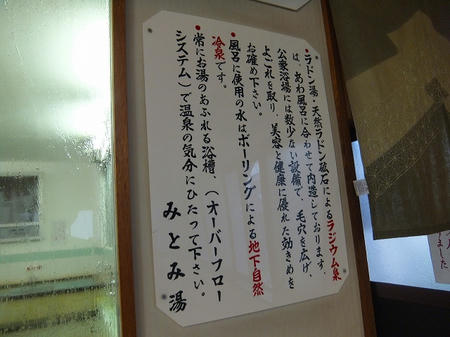 ●ラドン湯・天然ラドン砿石によるラジウム泉
は、あわ風呂に合わせて内造しております。
公衆浴場には数少ない設備で、毛穴を広げ、
よごれを取り、美容と健康に優れた効きめを
お確め下さい。
●風呂に使用の水はボーリングによる地下自然
冷泉です。
●常にお湯のあふれる浴槽、(オーバーフロー
システム)で温泉の気分にひたって下さい。
みとみ湯
ました